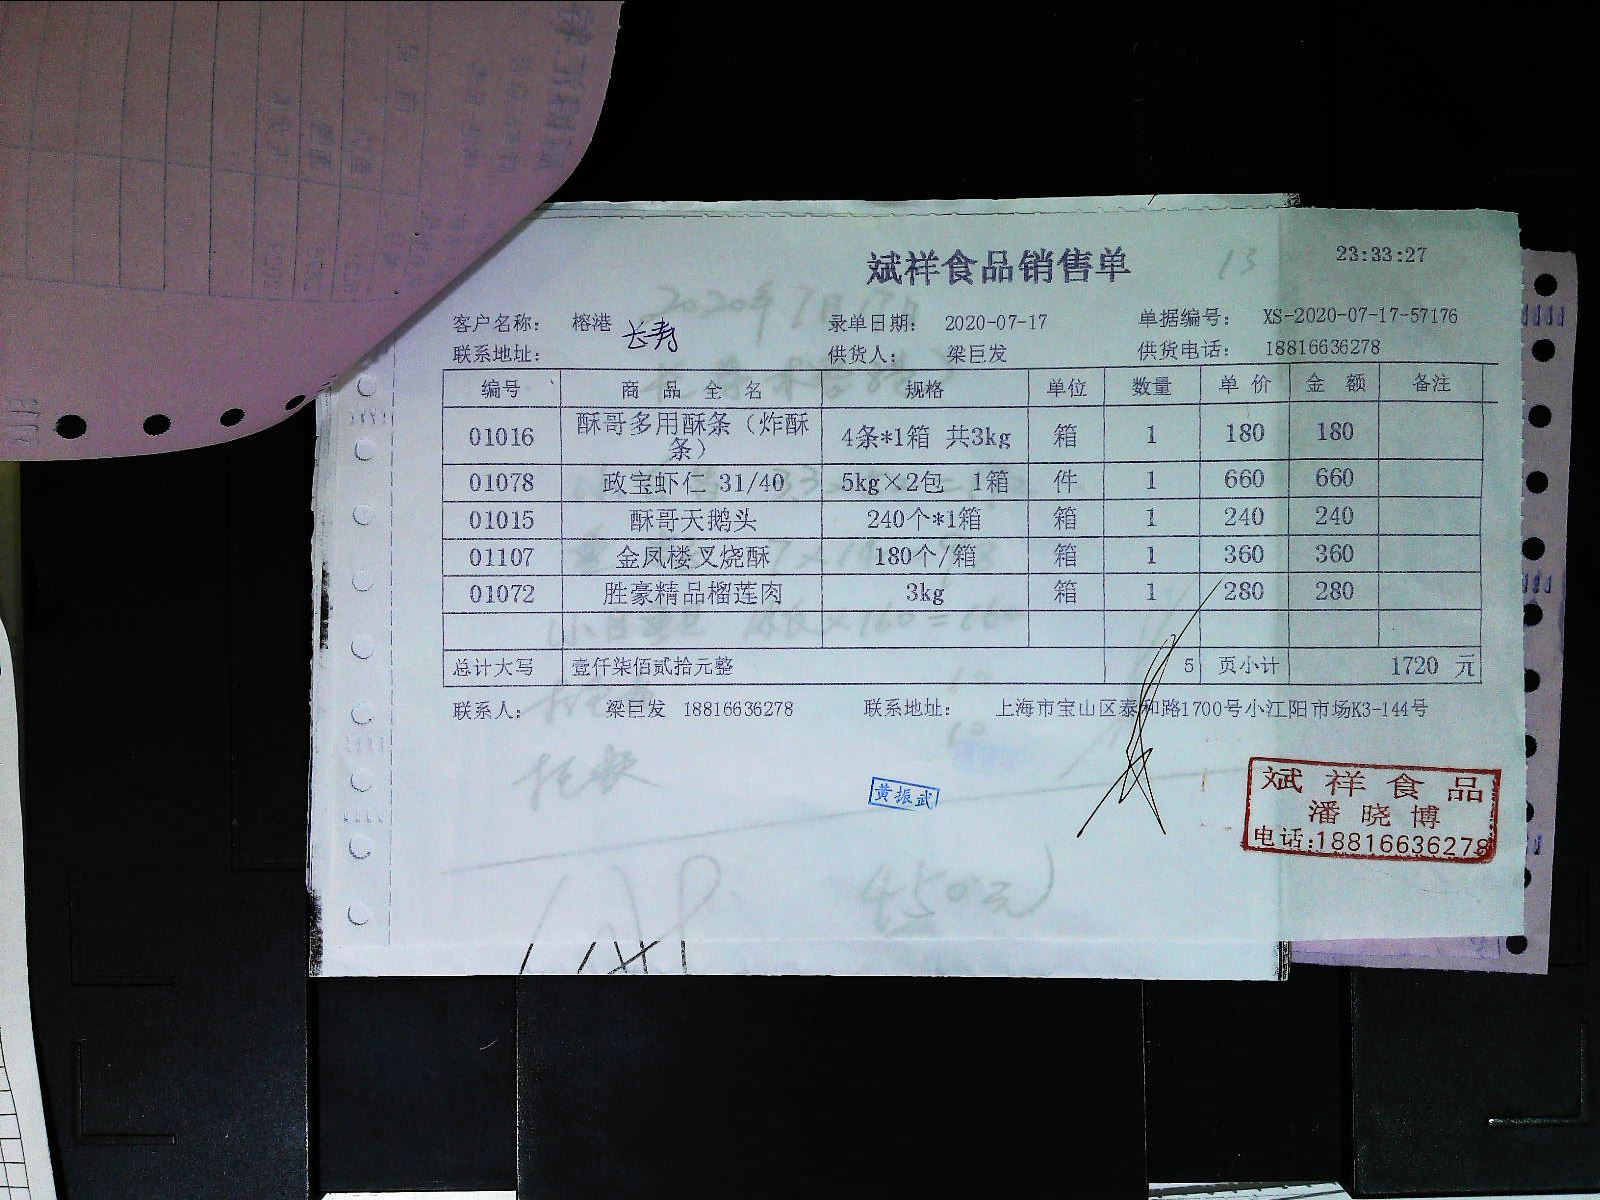 斌祥食品销售单
13
23:33:27
客户名称： 榕港 长寿 录单日期： 2020-07-17 单据编号： XS-2020-07-17-57176
联系地址： 供货人： 梁巨发 供货电话： 18816636278
编号 商品全名 规格 单位 数量 单价 金额 备注
01016 酥哥多用酥条（炸酥条） 4条*1箱 共3kg 箱 1 180 180
01078 政宝虾仁 31/40 5kg×2包 1箱 件 1 660 660
01015 酥哥天鹅头 240个*1箱 箱 1 240 240
01107 金凤楼叉烧酥 180个/箱 箱 1 360 360
01072 胜豪精品榴莲肉 3kg 箱 1 280 280
总计大写 壹仟柒佰贰拾元整 5 页小计 1720 元
联系人： 梁巨发 18816636278 联系地址： 上海市宝山区泰和路1700号小江阳市场K3-144号
黄振武
斌祥食品
潘晓博
电话:18816636278
450元